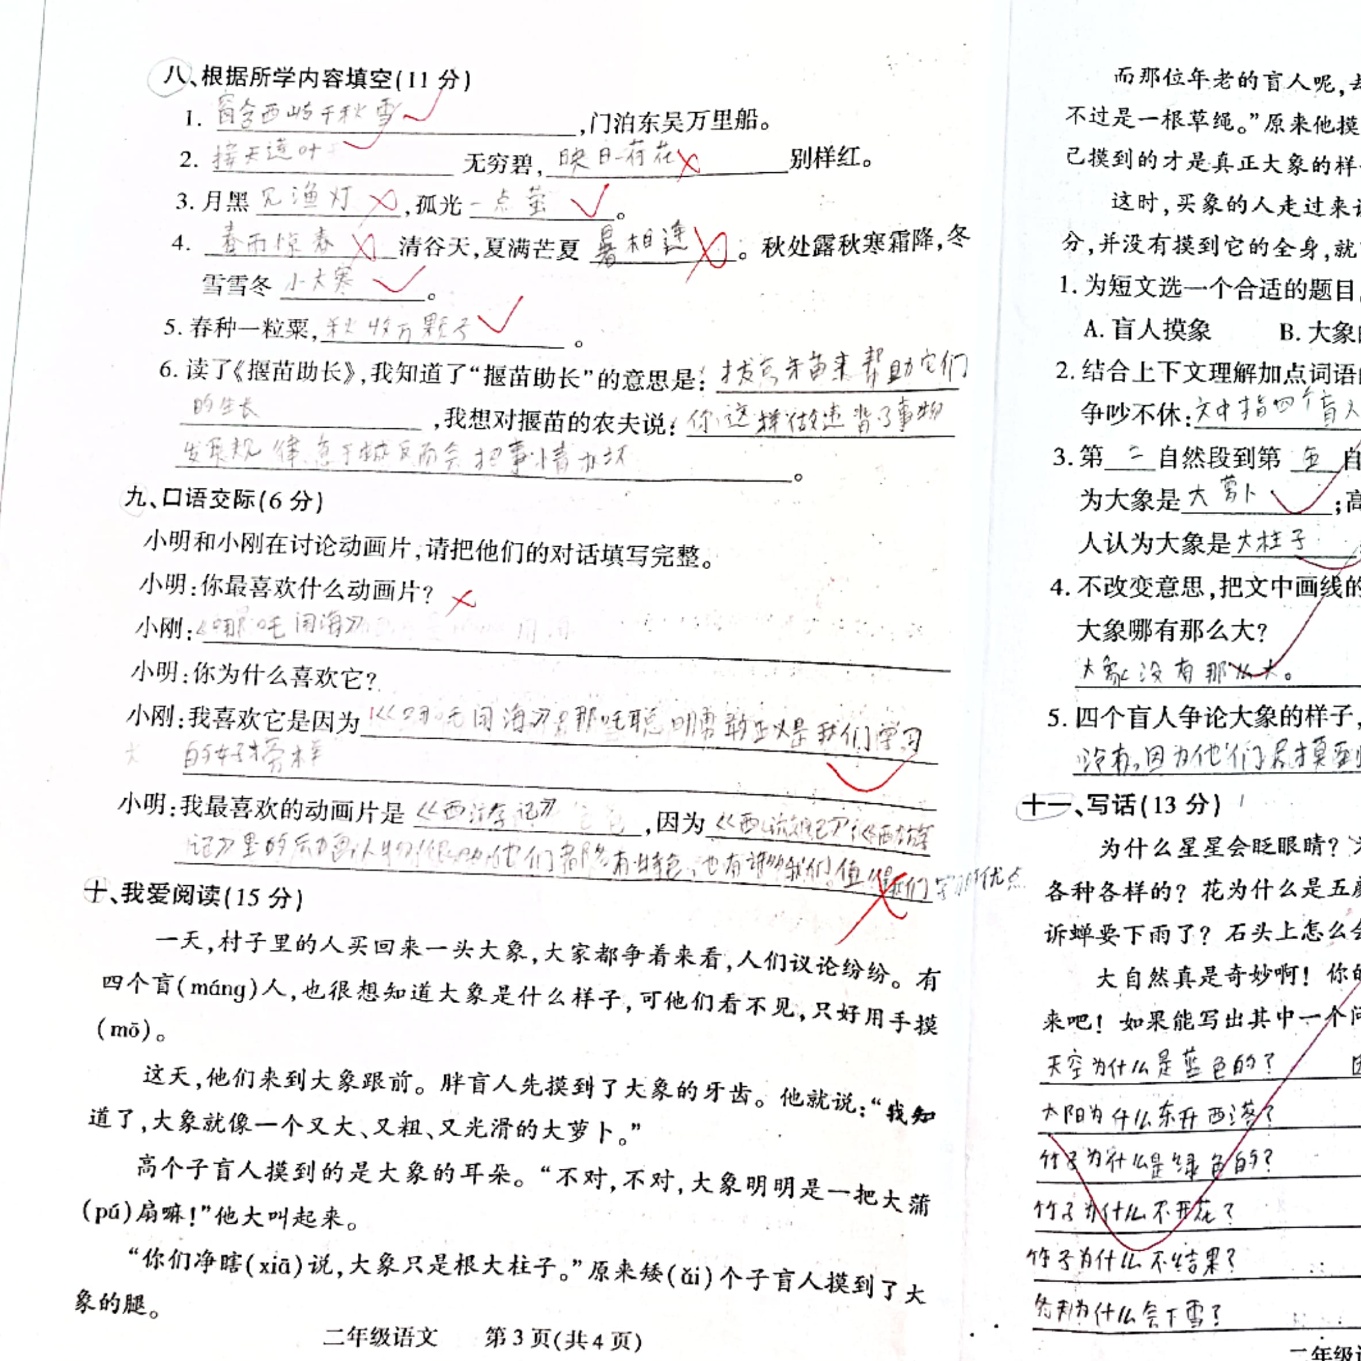 八、根据所学内容填空(11 分)
1. 窗含西岭千秋雪,门泊东吴万里船。
2. 接天莲叶 无穷碧,映日荷花 别样红。
3. 月黑 见渔灯,孤光 一点萤。
4. 春雨惊春 清谷天,夏满芒夏 暑相连。秋处露秋寒霜降,冬
雪雪冬 小大寒。
5. 春种一粒粟,秋收万颗子。
6. 读了《揠苗助长》,我知道了“揠苗助长”的意思是:拔高禾苗来帮助它们
的生长,我想对揠苗的农夫说:你这样做违背了事物
发展规律,急于求成反而会把事情办坏。
九、口语交际(6 分)
小明和小刚在讨论动画片,请把他们的对话填写完整。
小明:你最喜欢什么动画片?
小刚:《哪吒闹海》
小明:你为什么喜欢它?
小刚:我喜欢它是因为《哪吒闹海》里那吒聪明勇敢正义是我们学习
的好榜样
小明:我最喜欢的动画片是《西游记》,因为《西游记》
记》里的 人物 他们 有特色,也有 我们 值得我们学习的优点
十、我爱阅读(15 分)
一天,村子里的人买回来一头大象,大家都争着来看,人们议论纷纷。有
四个盲(máng)人,也很想知道大象是什么样子,可他们看不见,只好用手摸
(mō)。
这天,他们来到大象跟前。胖盲人先摸到了大象的牙齿。他就说:“我知
道了,大象就像一个又大、又粗、又光滑的大萝卜。”
高个子盲人摸到的是大象的耳朵。“不对,不对,大象明明是一把大蒲
(pú)扇嘛!”他大叫起来。
“你们净瞎(xiā)说,大象只是根大柱子。”原来矮(ǎi)个子盲人摸到了大
象的腿。
二年级语文 第 3 页(共 4 页)
而那位年老的盲人呢,
不过是一根草绳。”原来他摸
己摸到的才是真正大象的样
这时,买象的人走过来
分,并没有摸到它的全身,就
1. 为短文选一个合适的题目
A. 盲人摸象 B. 大象
2. 结合上下文理解加点词语
争吵不休:文中指四个盲人
3. 第 二 自然段到第 五 自
为大象是 大萝卜 ;高
人认为大象是 大柱子
4. 不改变意思,把文中画线的
大象哪有那么大?
大象没有那么大。
5. 四个盲人争论大象的样子,
没有,因为他们只摸到
十一、写话(13 分)
为什么星星会眨眼睛?
各种各样的?花为什么是五
诉蝉要下雨了?石头上怎么会
大自然真是奇妙啊!你
来吧!如果能写出其中一个问
天空为什么是蓝色的?
太阳为什么东升西落?
竹子为什么是绿色的?
竹子为什么不开花?
竹子为什么不结果?
为什么会下雪?
二年级